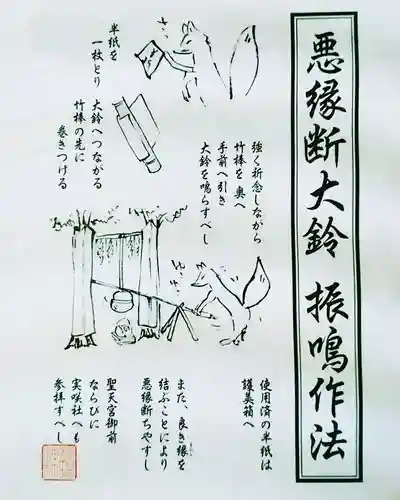 悪縁断大鈴 振鳴作法
半紙を
一枚とり
大鈴へつながる
竹棒の先に
巻きつける
強く祈念しながら
竹棒を 奥へ
手前へ引き
大鈴を鳴らすべし
使用済の半紙は
護美箱へ
また、良き縁を
結ぶことにより
悪縁断ちやすし
聖天宮御前
ならびに
実咲社へも
参拝すべし